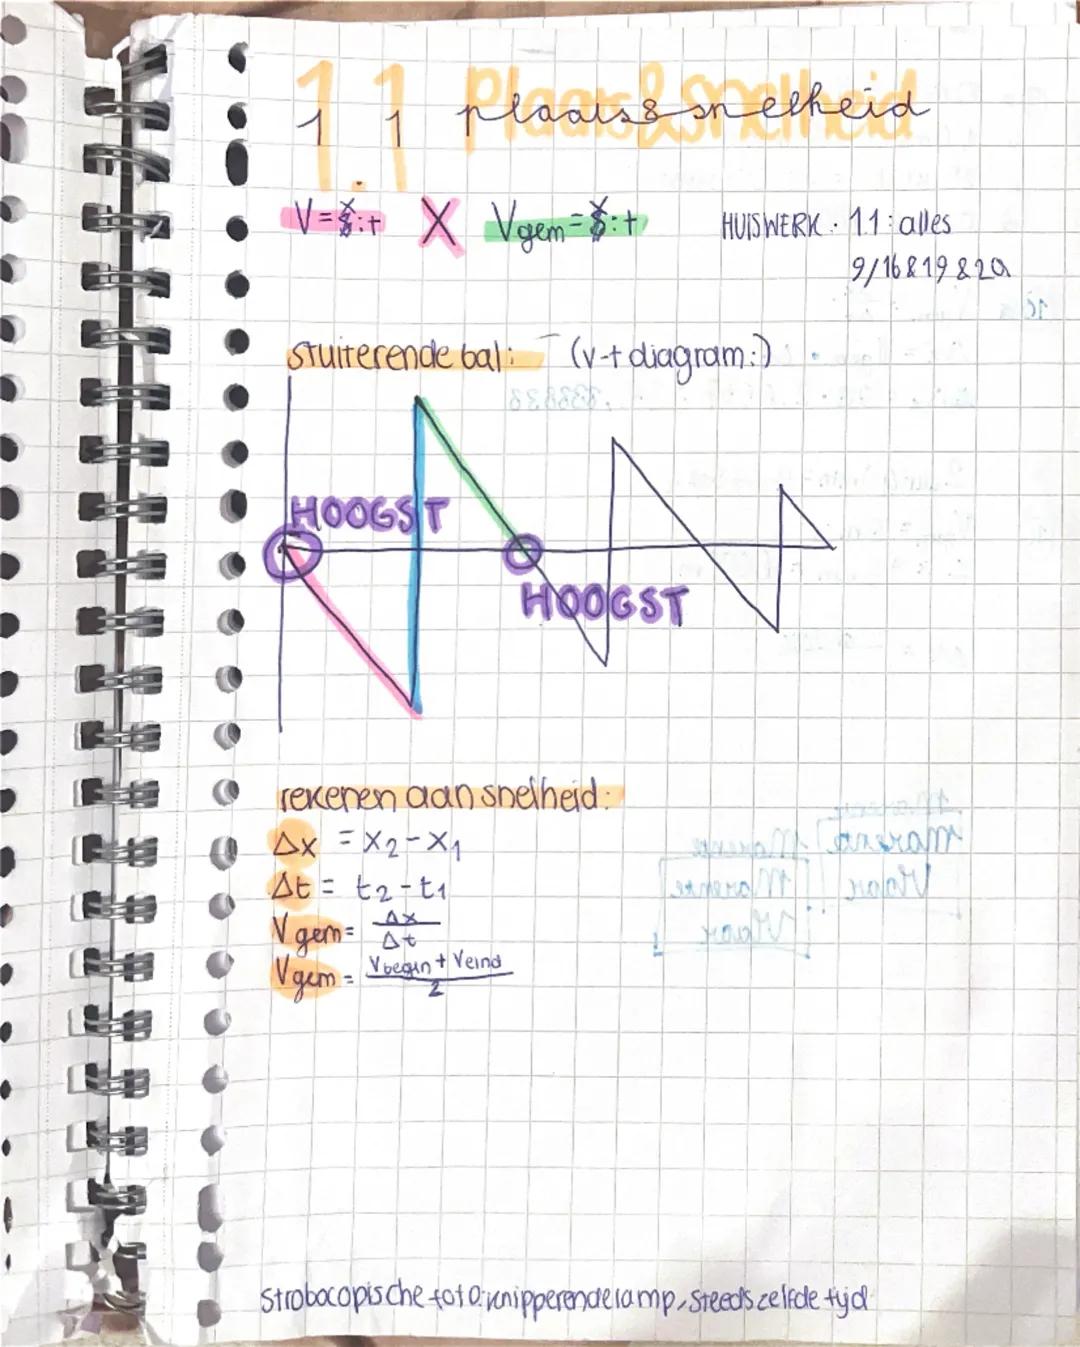 1.1 plaats & snelheid
V = x : t X Vgem = x : t HUISWERK : 1.1 : alles
9/16 & 19 & 20
stuiterende bal: (v-t diagram:)
HOOGST
HOOGST
rekenen aan snelheid:
Δx = x₂ - x₁
Δt = t₂ - t₁
Vgem = Δx / Δt
Vgem = Vbegin + Veind / 2
Strobocopische foto: knipperende lamp, steeds zelfde tijd